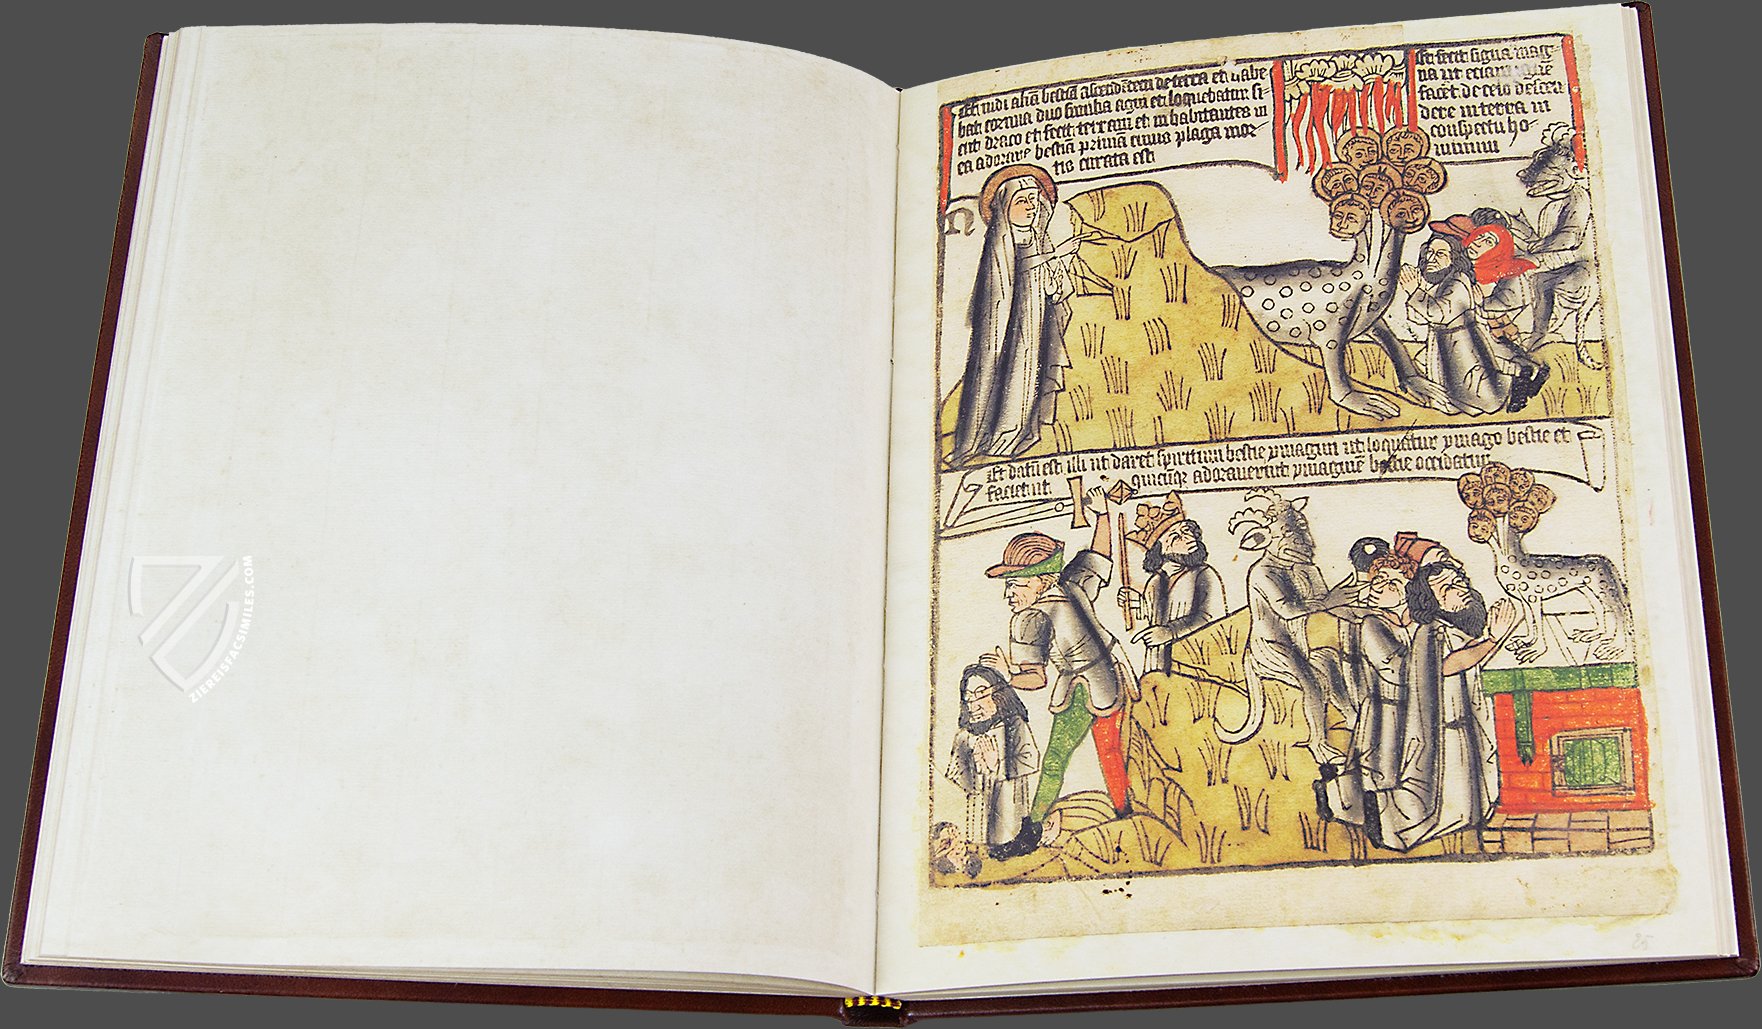 Et vidi aliā bestiā ascendētem de terra et habe
bat cornua duo similia agni et loquebatur si
cut draco et fecit terram et inhabitantes in
ea adorare bestiā primā cuius plaga mor-
tis curata est
Et fecit signa mag-
na ut eciam igne
facet de celo descen
dere in terra in
conspectu ho-
minum
n
Et datū est illi ut daret spiritum bestie ymagini ut loquatur ymago bestie et
faciet ut quicūqz adoraverint ymaginē bestie occidatur
ZIEREISFACSIMILES.COM
25